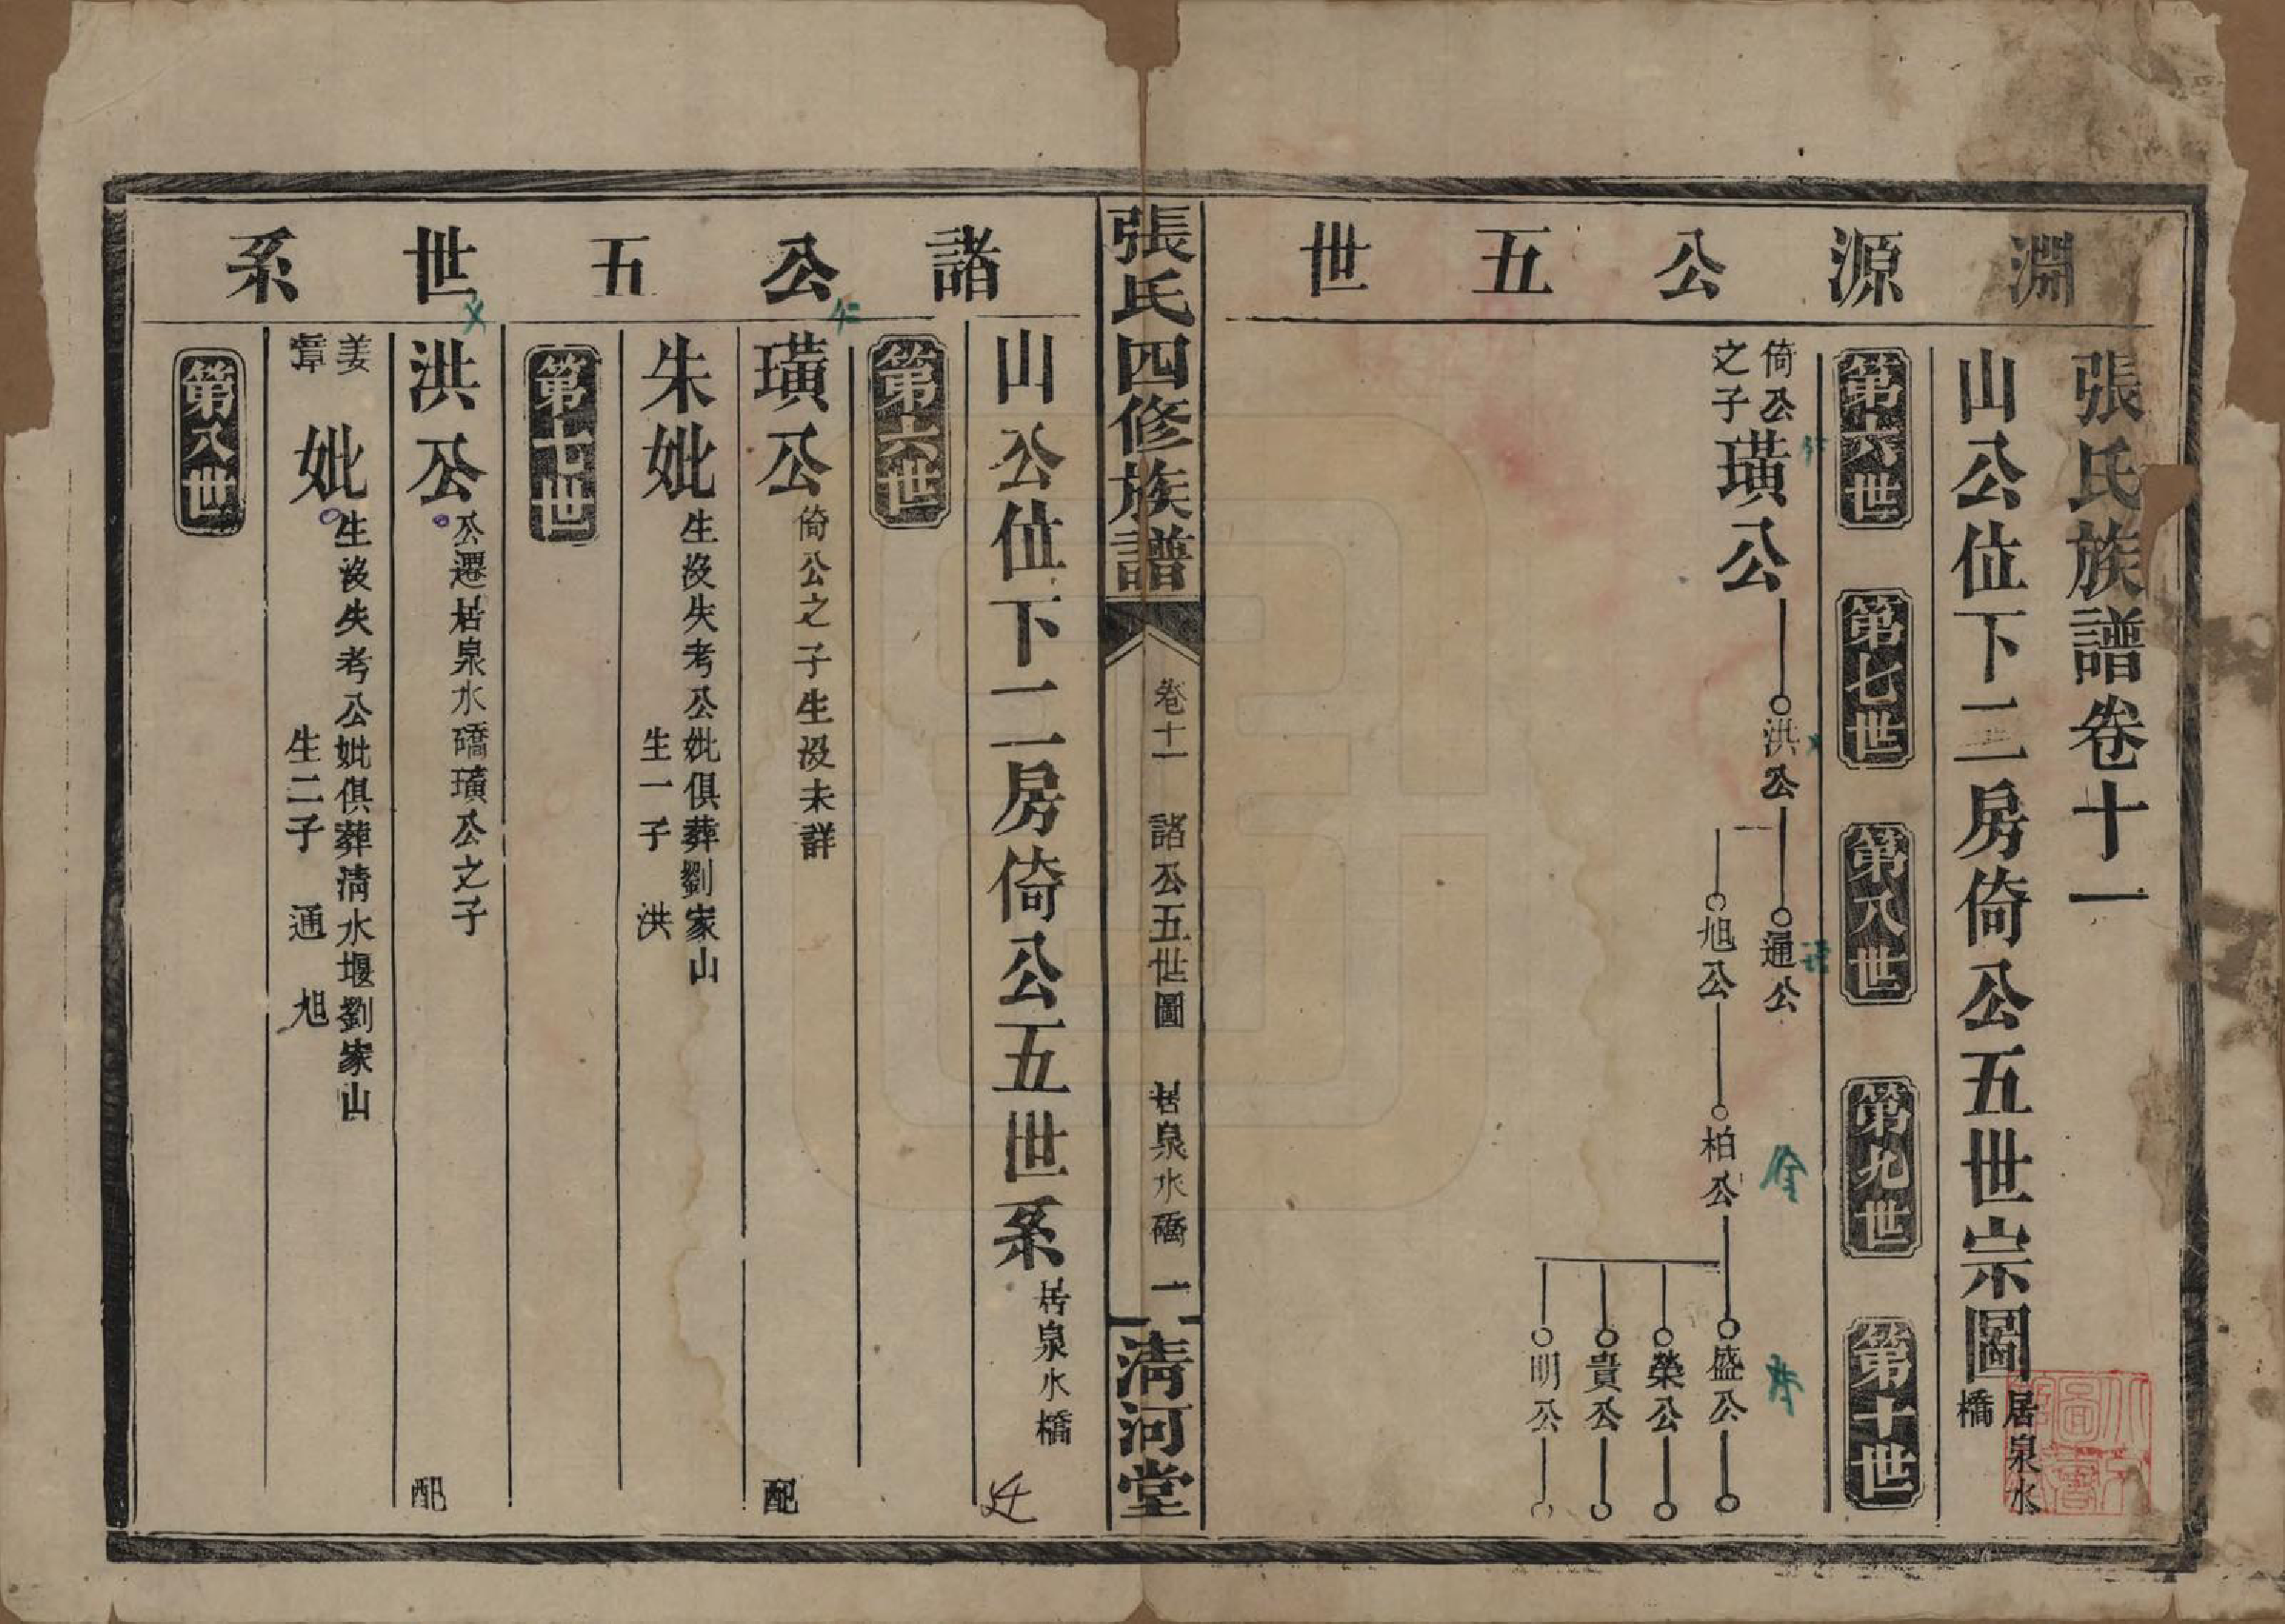 淵源公五世
張氏族譜卷十一
山公位下二房倚公五世宗圖 居泉水橋
第六世 第七世 第八世 第九世 第十世
倚公之子 璜公 洪公 通公
旭公 柏公 盛公
榮公
貴公
明公
張氏四修族譜 卷十一 諸公五世圖 居泉水橋 一 淸河堂
諸公五世系
山公位下二房倚公五世系 居泉水橋
第六世
璜公 倚公之子生沒未詳 配
朱妣 生沒失考公妣俱葬劉家山
生一子 洪
第七世
洪公 公遷居泉水礄璜公之子 配
姜章妣 生沒失考公妣俱葬淸水堰劉家山
生二子 通 旭
第八世